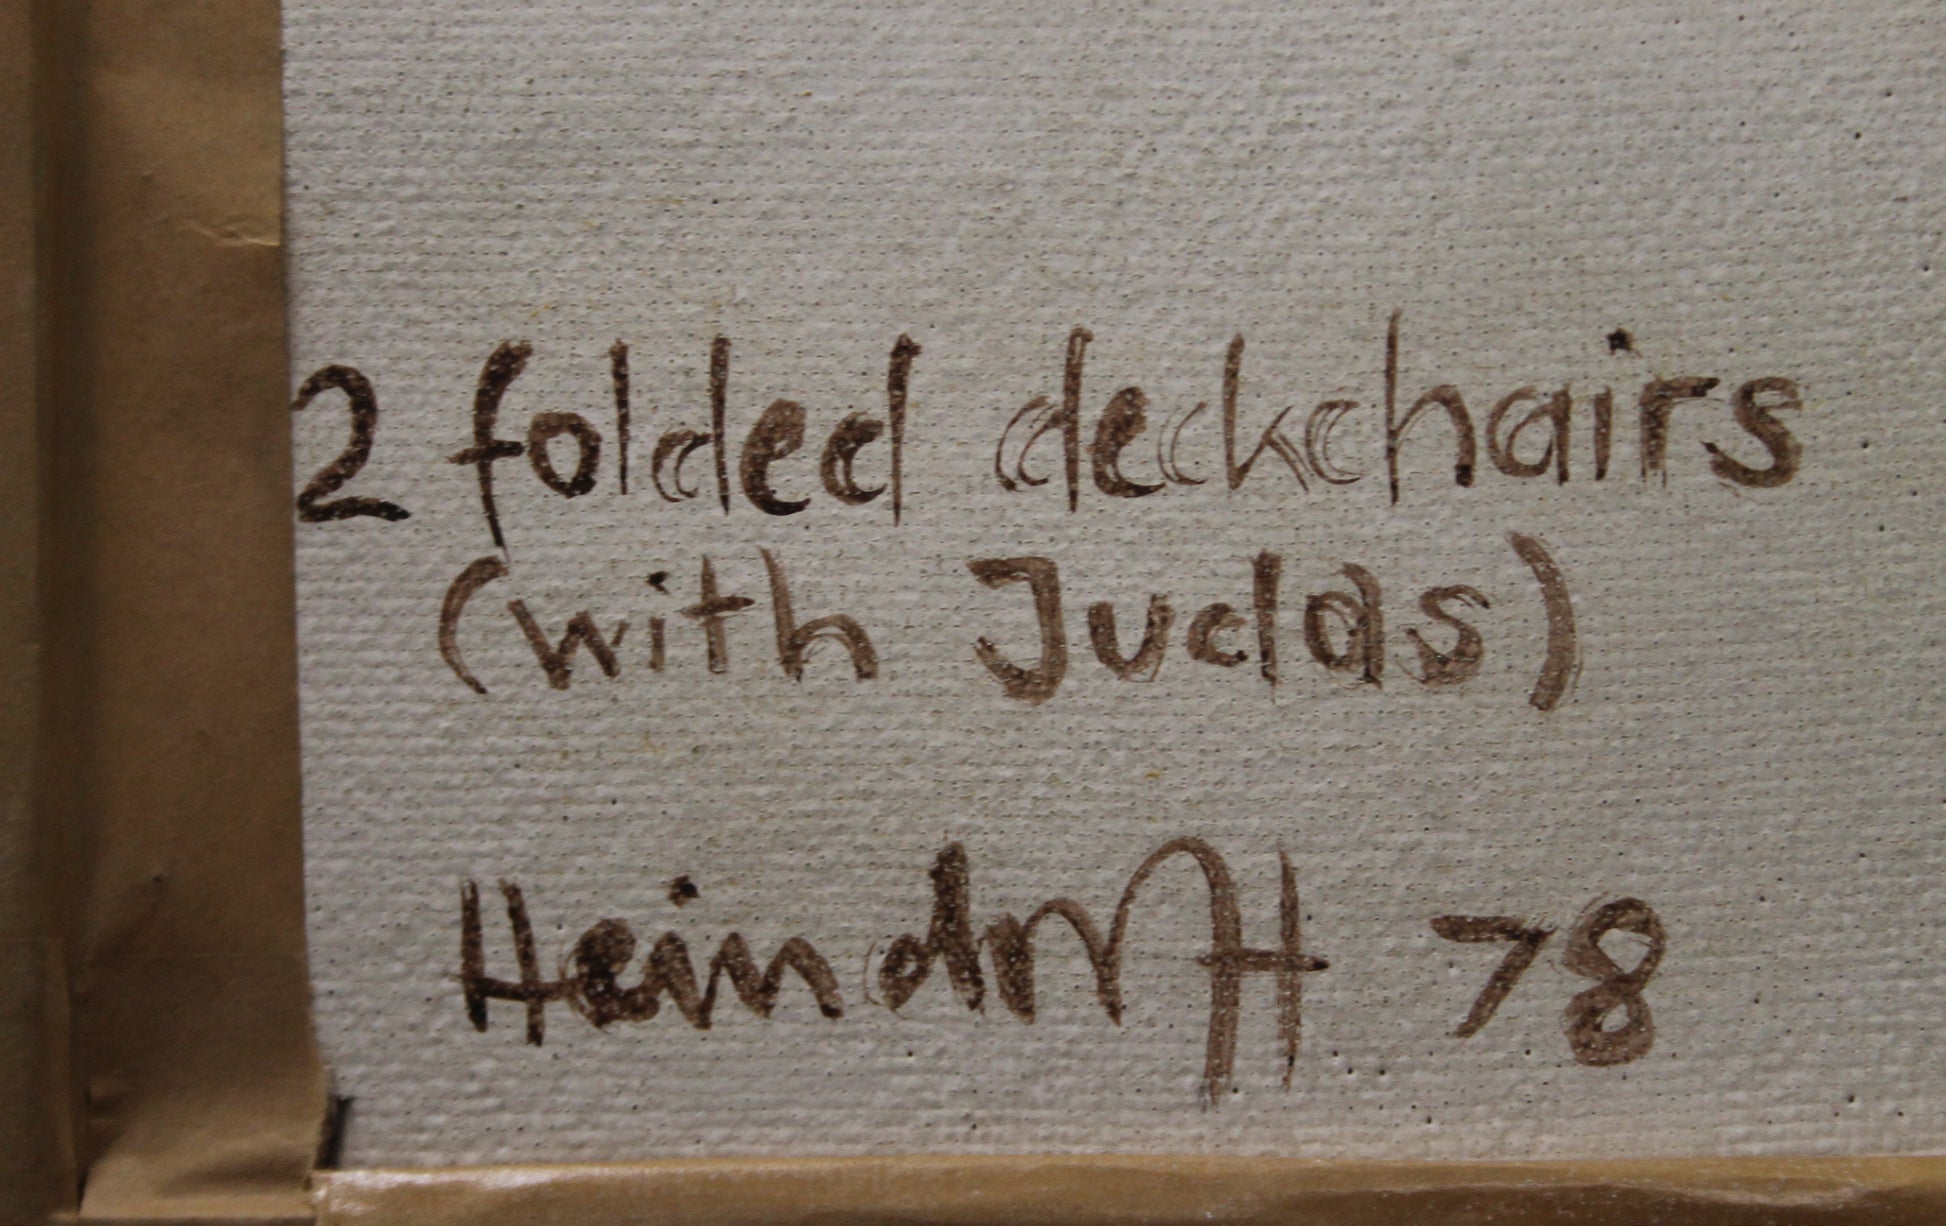 2 folded deckchairs
(with Judas)
Heindorff 78